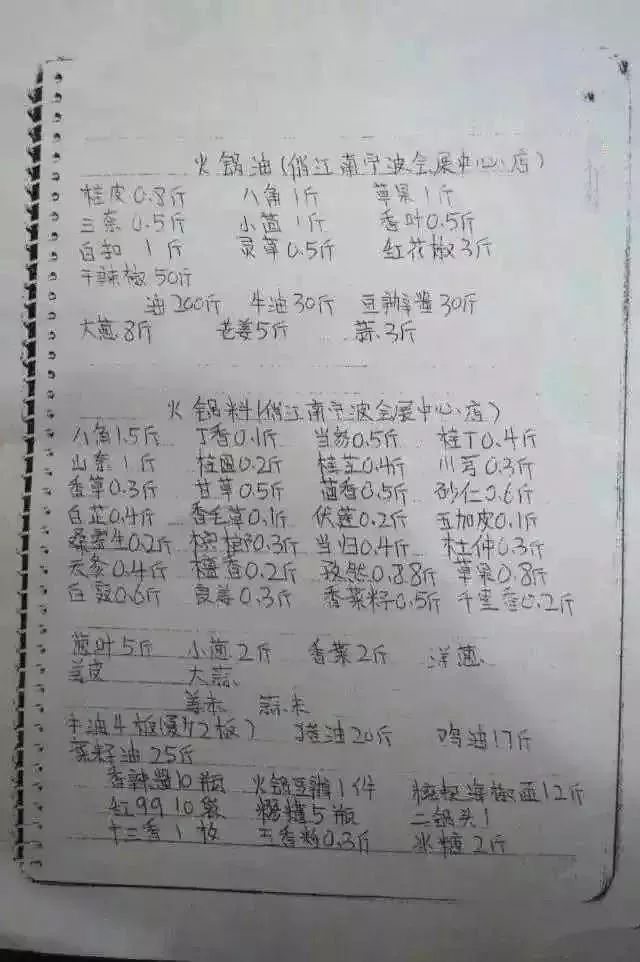 火锅油(俏江南宁波会展中心店)
桂皮0.8斤 八角1斤 草果1斤
三奈0.5斤 小茴1斤 香叶0.5斤
白扣1斤 灵草0.5斤 红花椒3斤
干辣椒50斤
油200斤 牛油30斤 豆瓣酱30斤
大葱8斤 老姜5斤 蒜3斤
火锅料(俏江南宁波会展中心店)
八角1.5斤 丁香0.1斤 当参0.5斤 桂丁0.4斤
山奈1斤 桂圆0.2斤 桂芝0.4斤 川芎0.3斤
香草0.3斤 甘草0.5斤 茴香0.5斤 砂仁0.6斤
白芷0.4斤 香毛草0.1斤 伏苓0.2斤 五加皮0.1斤
桑寄生0.2斤 槟榔0.3斤 当归0.4斤 杜仲0.3斤
0.4斤 檀香0.2斤 孜然0.8.8斤 草果0.8斤
白蔻0.6斤 良姜0.3斤 香菜籽0.5斤 千里香0.2斤
葱叶5斤 小茴2斤 香菜2斤 洋葱
姜皮 大蒜
姜末 蒜末
牛油4板(夏为2板) 猪油20斤 鸡油17斤
菜籽油25斤
香辣酱10瓶 火锅豆瓣1件 糍粑海椒面12斤
红99 10袋 糟5瓶 二锅头1
十三香1 五香粉0.3斤 冰糖2斤